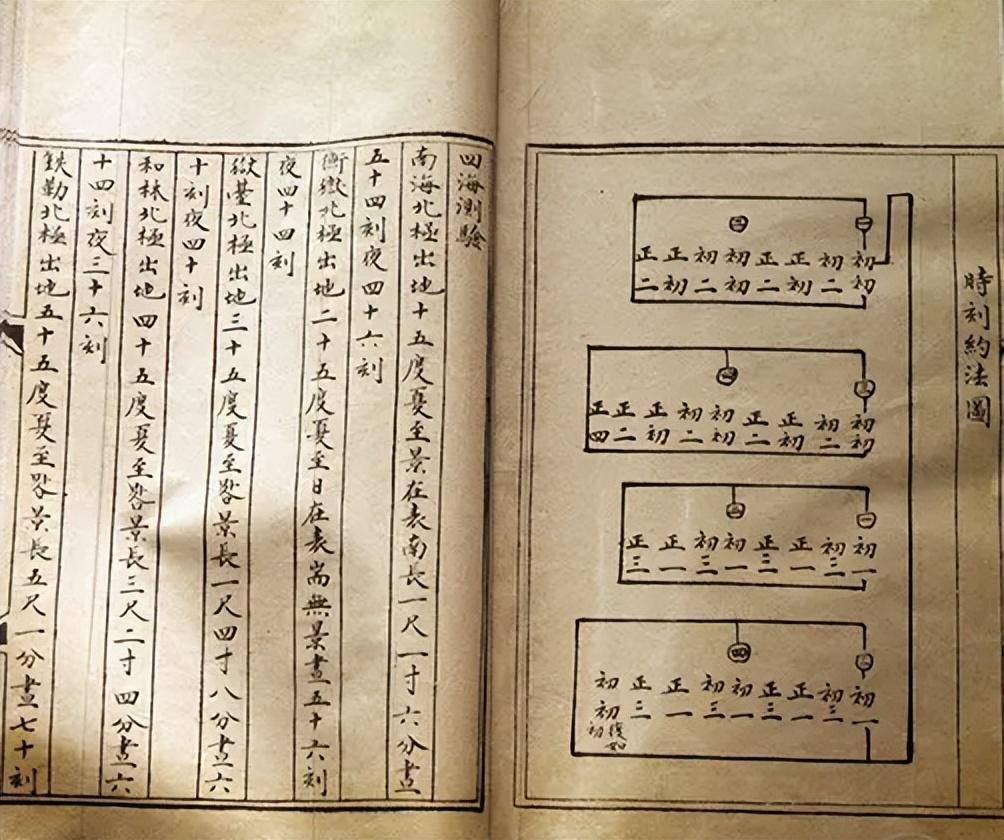 時刻約法圖
初初 初二 正初 正二 初初 初二 正初 正二
初初 初二 正初 正二 初初 初二 正初 正二 正四
一
初一 初三 正一 正三 初一 初三 正一 正三
四
初一 初三 正一 正三 初一 初三 正一 正三 初初
復如初
四海測驗
南海北極出地十五度夏至景在表南長一尺一寸六分晝
五十四刻夜四十六刻
衡嶽北極出地二十五度夏至日在表耑無景晝五十六刻
夜四十四刻
嶽臺北極出地三十五度夏至晷景長一尺四寸八分晝六
十刻夜四十刻
和林北極出地四十五度夏至晷景長三尺二寸四分晝六
十四刻夜三十六刻
鉄勒北極出地五十五度夏至晷景長五尺一分晝七十刻